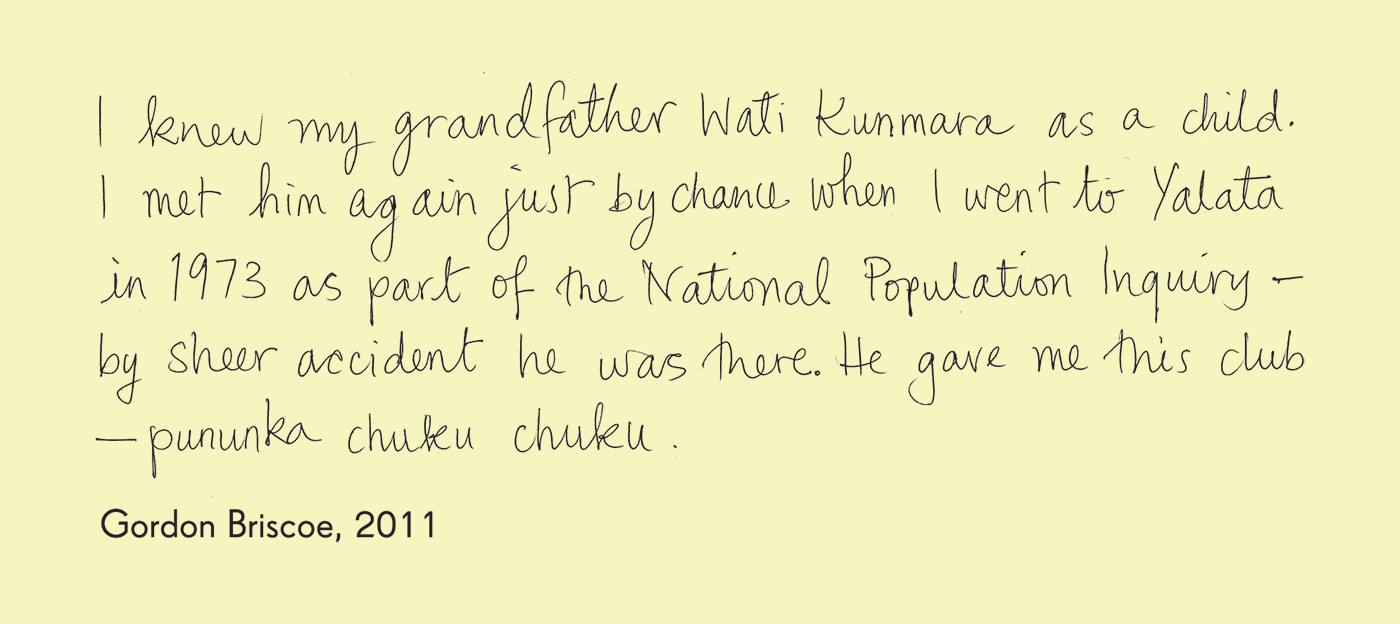 I knew my grandfather Wati Kunmara as a child.
I met him again just by chance when I went to Yalata
in 1973 as part of the National Population Inquiry –
by sheer accident he was there. He gave me this club
– pununka chuku chuku.
Gordon Briscoe, 2011